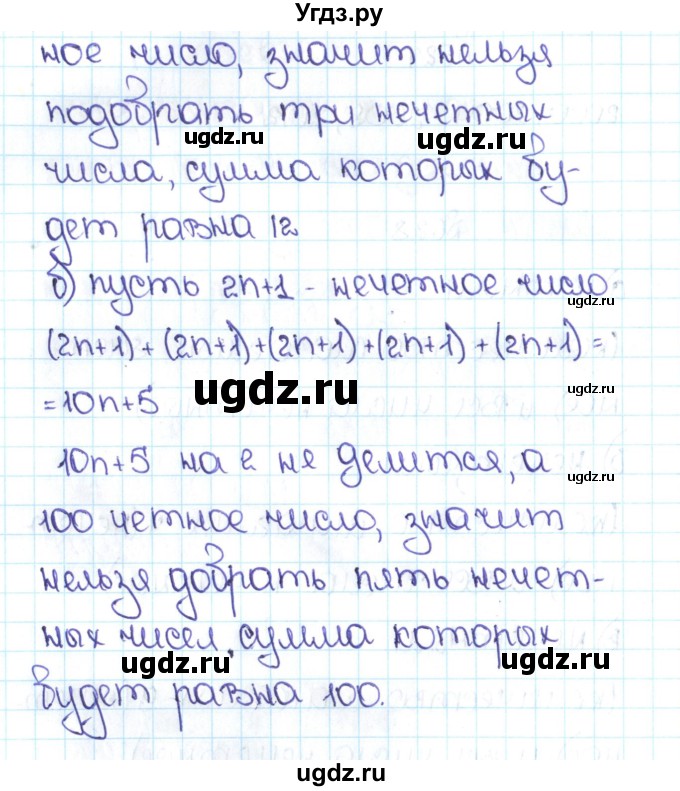 Угдз.ру
ное число, значит нельзя
подобрать три нечетных
ugdz.ru
числа, сумма которых бу-
ugdz.ru
дет равна 12
б) пусть 2n+1 - нечетное число
ugdz.ru
(2n+1)+(2n+1)+(2n+1)+(2n+1)+(2n+1)=
=10n+5
ugdz.ru
ugdz.ru
10n+5 на 2 не делится, а
ugdz.ru
100 четное число, значит
ugdz.ru
нельзя добрать пять нечет-
ных чисел, сумма которых
ugdz.ru
ugdz.ru
будет равна 100.
ugdz.ru
ugdz.ru